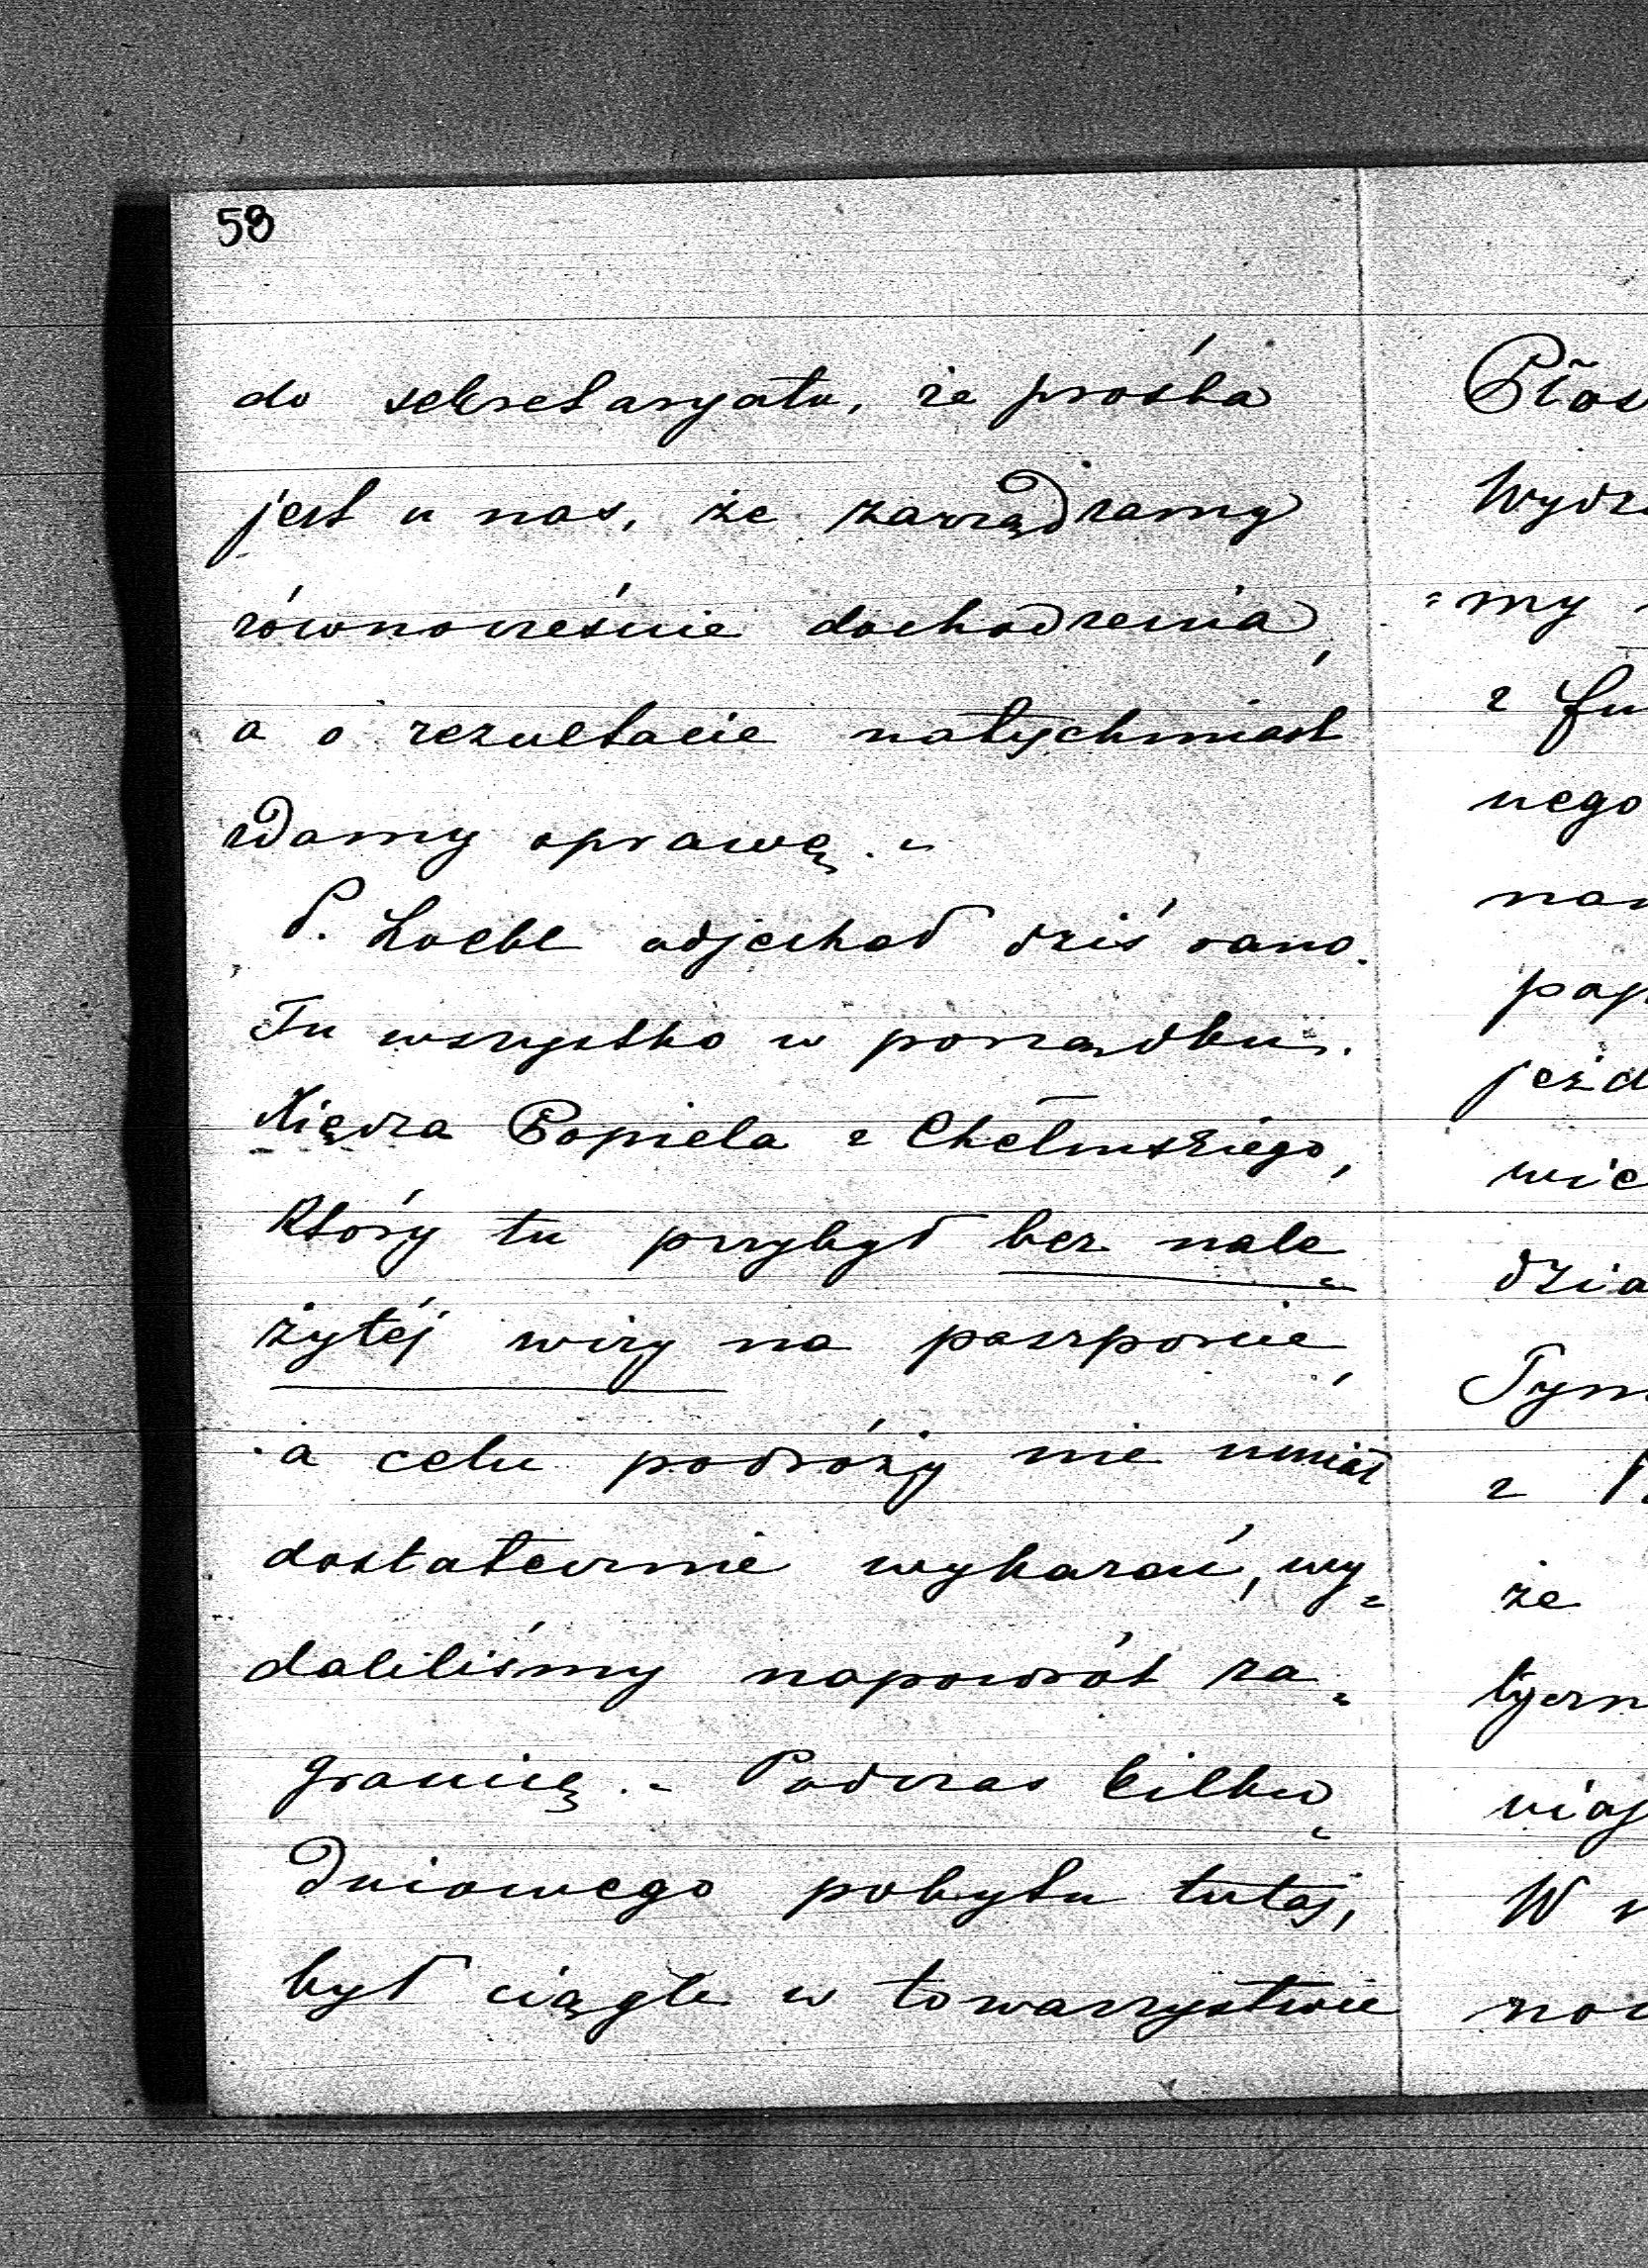 58
do sekretaryatu, że prośba
jest u nas, że zarządzamy
równocześnie dochodzenia,
a o rezultacie natychmiast
zdamy sprawę. -
P. Loebl odjechał dziś rano.
Tu wszystko w porządku.
Księdza Popiela z Chełmskiego,
który tu przybył bez nale=
żytéj wizy na paszporcie,
a celu podróży nie umiał
dostatecznie wykazać, wy=
daliliśmy napowrót za=
granicę. - Podczas kilku=
dniowego pobytu tutaj,
był ciągle w towarzystwie
Wydz
=my
z fu
nego
pap
jeźd
wie
dzia
Tym
z
że
W